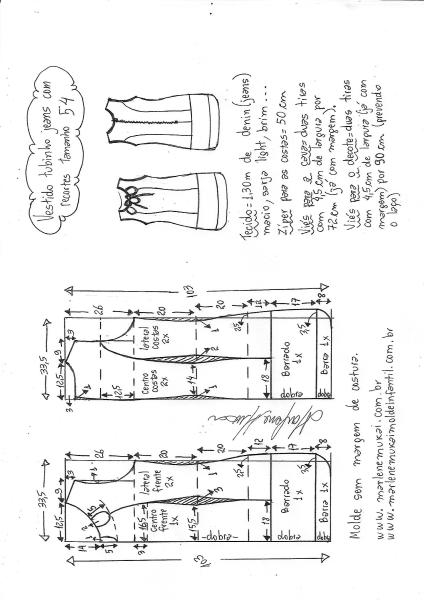 Vestido tubinho jeans com
recortes tamanho 54
Tecido = 1,30m de denin (jeans)
macio, sarja light, brim ...
Zíper para as costas = 50 cm
Viés para a cava = duas tiras
com 4,5 cm de largura por
72 cm (já com margem).
Viés para o decote = duas tiras
com 4,5 cm de largura (já com
margem) por 90 cm (prevendo
o laço)
103
26
20
20
12
17
8
33,5
12,5
9
3
3
12,5
1
lateral
costas
2x
Centro
costas
2x
14
2
1
2,5
3,5
18
Barrado
1x
dobra
Barra 1x
dobra
26
20
20
12
17
8
33,5
12,5
9
3
14
5
3
lateral
frente
2x
Centro
frente
1x
16,5
15,5
3
1
2,5
3,5
18
dobra
Barrado
1x
Barra 1x
dobra
103
Molde sem margem de costura.
www.marlenemukai.com.br
www.marlenemukaimoldeinfantil.com.br